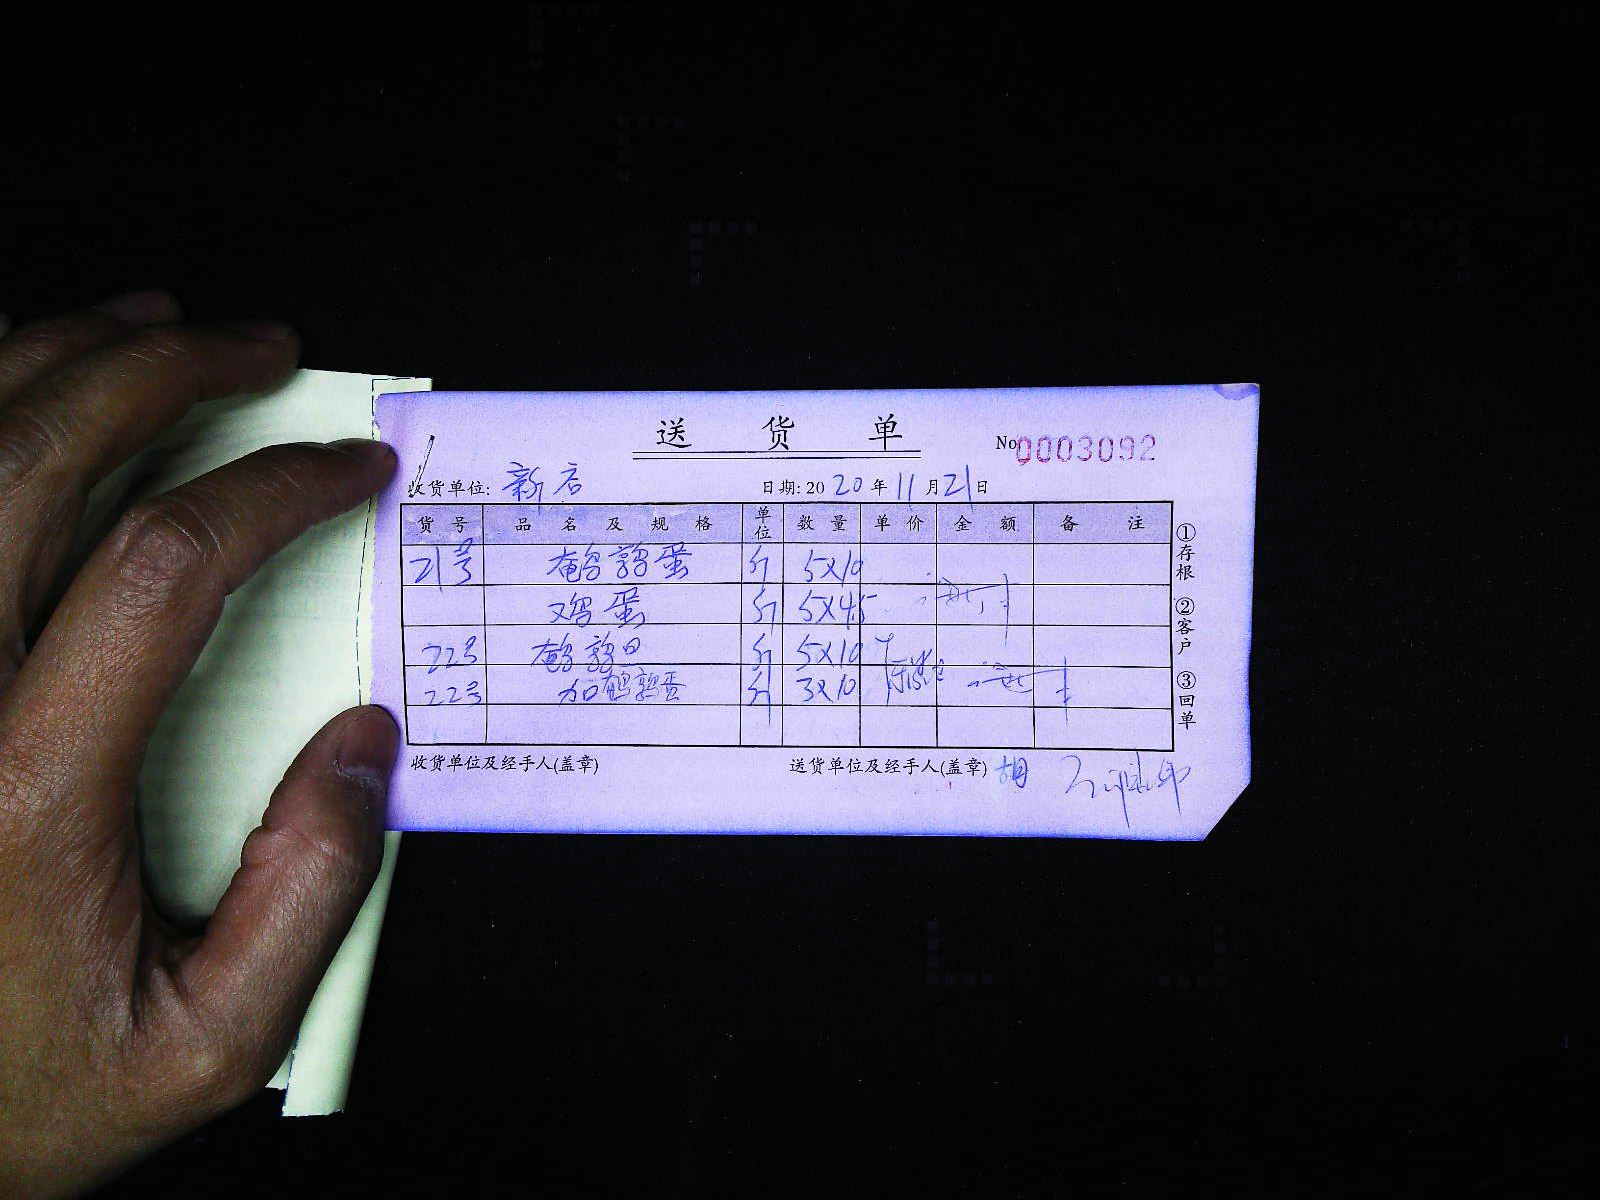 送 货 单
No 0003092
收货单位: 新店 日期: 2020 年 11 月 21 日
货号 品名及规格 单位 数量 单价 金额 备注
21号 鹌鹑蛋 斤 5X10
鸡蛋 斤 5X45
22号 鹌鹑旦 斤 5X10
22号 加鹌鹑蛋 斤 3X10
收货单位及经手人(盖章) 送货单位及经手人(盖章) 胡
①存根 ②客户 ③回单